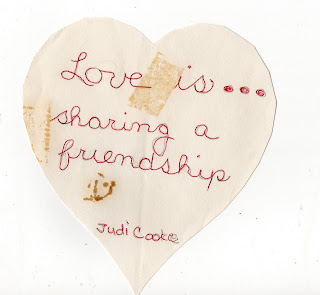 Love is...
sharing a
friendship
Judi Cook